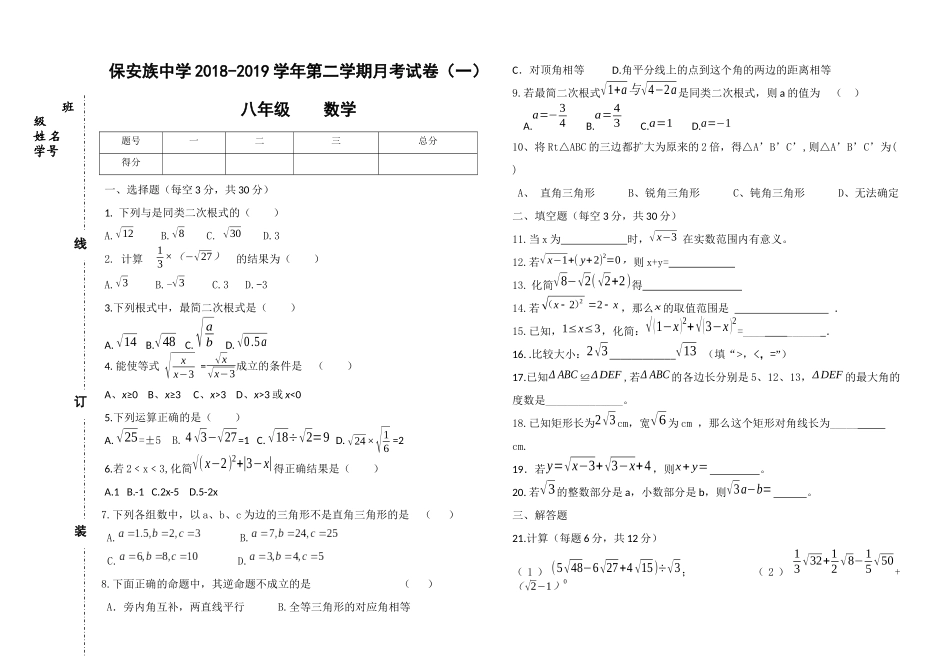 保安族中学2018-2019学年第二学期月考试卷（一）
八年级 数学
班
级
姓名
学号
线
订
装
题号 一 二 三 总分
得分
一、选择题（每空3分，共30分）
1. 下列与是同类二次根式的（ ）
A.√12 B.√8 C. √30 D.3
2. 计算 1/3×（−√27） 的结果为（ ）
A.√3 B.-√3 C.3 D.-3
3.下列根式中，最简二次根式是（ ）
A.√14 B.√48 C.√(a/b) D.√0.5a
4.能使等式 √(x/(x−3)) = √x/√(x−3) 成立的条件是 （ ）
A、x≥0 B、x≥3 C、x>3 D、x>3或x<0
5.下列运算正确的是（ ）
A.√25=±5 B. 4√3−√27=1 C.√18÷√2=9 D.√24×√(1/6)=2
6.若2＜x＜3,化简√(x−2)²+|3−x|得正确结果是（ ）
A.1 B.-1 C.2x-5 D.5-2x
7.下列各组数中，以a、b、c为边的三角形不是直角三角形的是 （ ）
A.a=1.5,b=2,c=3 B.a=7,b=24,c=25
C.a=6,b=8,c=10 D.a=3,b=4,c=5
8.下面正确的命题中，其逆命题不成立的是 （ ）
A．旁内角互补，两直线平行 B.全等三角形的对应角相等
C．对顶角相等 D.角平分线上的点到这个角的两边的距离相等
9.若最简二次根式√1+a与√4−2a是同类二次根式，则a的值为 （ ）
A.a=−3/4 B.a=4/3 C.a=1 D.a=−1
10、将Rt△ABC的三边都扩大为原来的2倍，得△A’B’C’,则△A’B’C’为(
)
A、 直角三角形 B、锐角三角形 C、钝角三角形 D、无法确定
二、填空题（每空3分，共30分）
11.当x为____________时，√x−3 在实数范围内有意义。
12.若√x−1+(y+2)²=0，则x+y=____________
13. 化简√8−√2(√2+2)得__________________
14.若√(x-2)²=2-x，那么x的取值范围是 _________________ ．
15.已知，1≤x≤3，化简：√(1−x)²+√(3−x)²=______________.
16. .比较大小：2√3____________√13 （填“>，<，=”）
17.已知ΔABC≌ΔDEF,若ΔABC的各边长分别是5、12、13，ΔDEF的最大角的
度数是______________。
18.已知矩形长为2√3cm，宽√6为cm ，那么这个矩形对角线长为__________
cm.
19．若y=√x−3+√3−x+4，则x+y=_________。
20.若√3的整数部分是a，小数部分是b，则√3a−b=______。
三、解答题
21.计算（每题6分，共12分）
（1）(5√48−6√27+4√15)÷√3； （2）1/3√32+1/2√8−1/5√50+
（√2−1）⁰